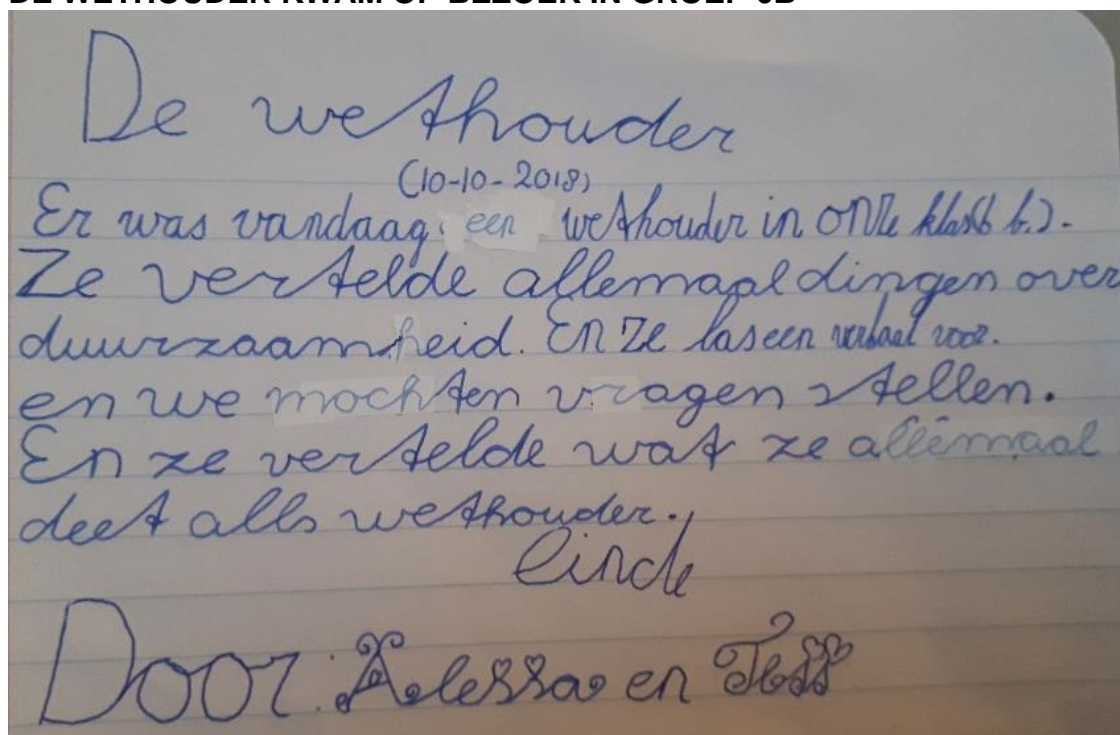 De wethouder
(10-10-2018)
Er was vandaag een wethouder in onze klas
Ze vertelde allemaal dingen over
duurzaamheid. En ze las een verhaal voor.
en we mochten vragen stellen.
En ze vertelde wat ze allemaal
deet alls wethouder.
Einde
Door: Alessa en Tess